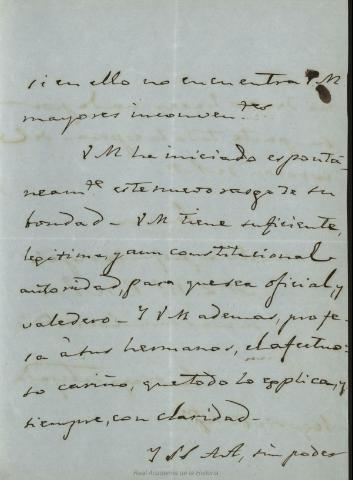 si en ello no encuentra V M
mayores inconven.tes
V M ha iniciado espontá-
neam.te este nuevo rasgo de su
bondad - V M tiene suficiente,
legítima, y aun constitucional
autoridad, para que sea oficial, y
valedero - Y V M ademas, profe-
sa à sus hermanos, el afectuo-
so cariño, que todo lo esplica, y
siempre, con claridad -
Y SS AA, sin poder
Real Academia de la Historia